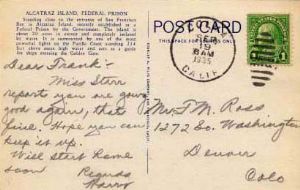 ALCATRAZ ISLAND, FEDERAL PRISON
Standing close to the entrance of San Francisco
is Alcatraz Island, recently established as a
Federal Prison by the Government. The island is
about 20 acres in extent and completely isolated
by water. It is surmounted by one of the most
powerful lights on the Pacific Coast standing 214
feet above high water mark and acts as a guide
for ships entering the Golden Gate.
POST CARD
THIS SPACE FOR
SEP
19
8 AM
1935
CALIF.
1
Dear Frank:
Miss Starr
reports you are going
good again, that
fine. Hope you can
keep it up.
Will start home
soon
Regards
Harry
Mr. T. M. Ross
1272 So. Washington
Denver
Colo